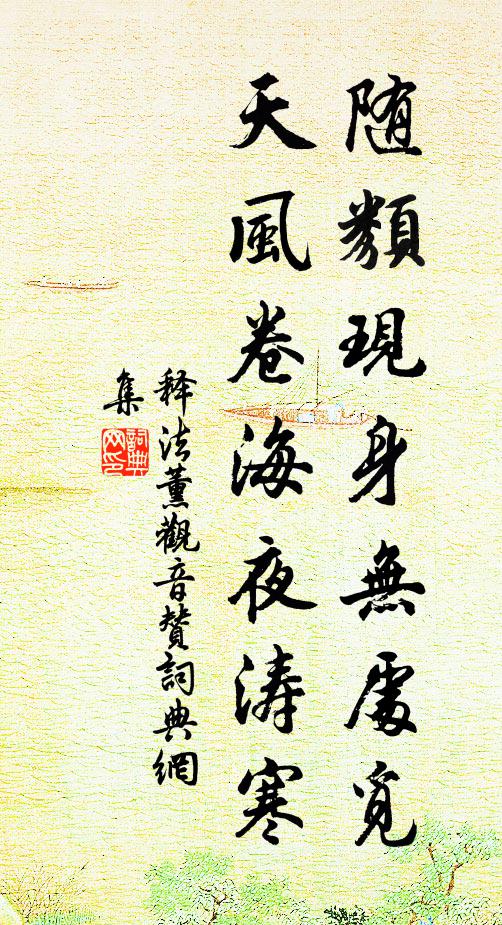 随類現身無處覓
天風卷海夜涛寒
释法薰觀音贊詞典網
集
詞典